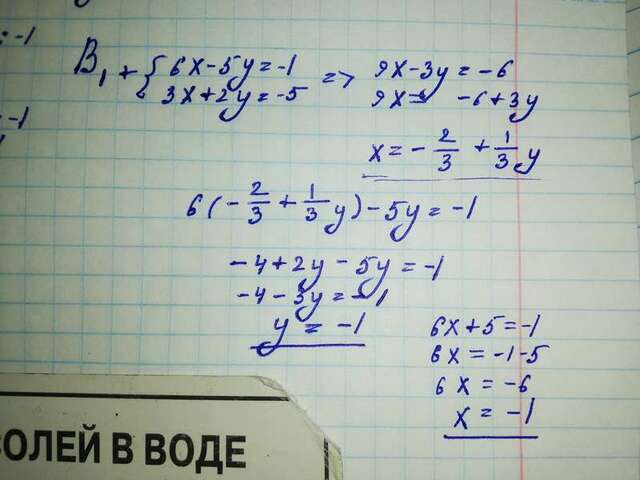 : -1
: -1
B₁ + { 6x-5y=-1 => 9x-3y=-6
3x+2y=-5 9x= -6+3y
x = - 2/3 + 1/3 y
6(- 2/3 + 1/3 y) - 5y = -1
-4+2y-5y=-1
-4-3y=-1
y = -1
6x+5=-1
6x=-1-5
6x=-6
x=-1
СОЛЕЙ В ВОДЕ